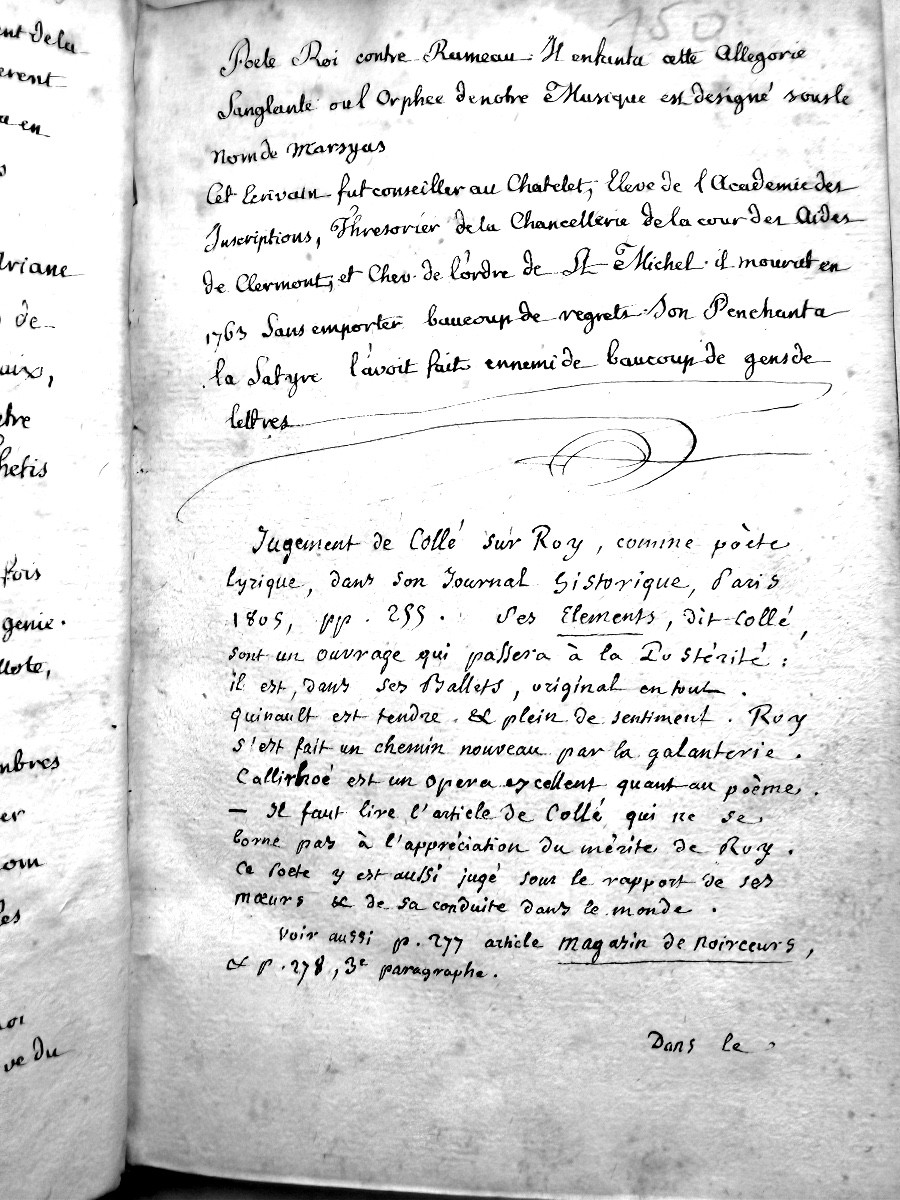 150
Poete Roi contre Rameau. Il enfanta cette Allegorie
Sanglante ou l'Orphee de notre Musique est designé sous le
nom de Marsyas
Cet Ecrivain fut conseiller au Chatelet, Eleve de l'Academie des
Inscriptions, Thresorier de la Chancellerie de la cour des Aides
de Clermont, et Chev. de l'ordre de St Michel. il mourut en
1763 Sans emporter baucoup de regrets. Son Penchant a
la Satyre l'avoit fait ennemi de baucoup de gens de
lettres
Jugement de Collé sur Roy, comme poète
lyrique, dans son Journal historique, Paris
1805, pp. 255. Ses Elements, dit Collé,
sont un ouvrage qui passera à la Postérité;
il est, dans ses Ballets, original en tout.
quinault est tendre & plein de sentiment. Roy
s'est fait un chemin nouveau par la galanterie.
Callirhoé est un opera excellent quant au poème.
— Il faut lire l'article de Collé qui ne se
borne pas à l'appréciation du mérite de Roy.
Ce Poete y est aussi jugé sous le rapport de ses
mœurs & de sa conduite dans le monde.
Voir aussi p. 277 article magasin de noirceurs,
& p. 278, 3e paragraphe.
Dans le
ent dela
erent
en
riane
de
aix,
tre
hetis
fois
genie.
llote,
mbres
er
om
les
oi
ve du